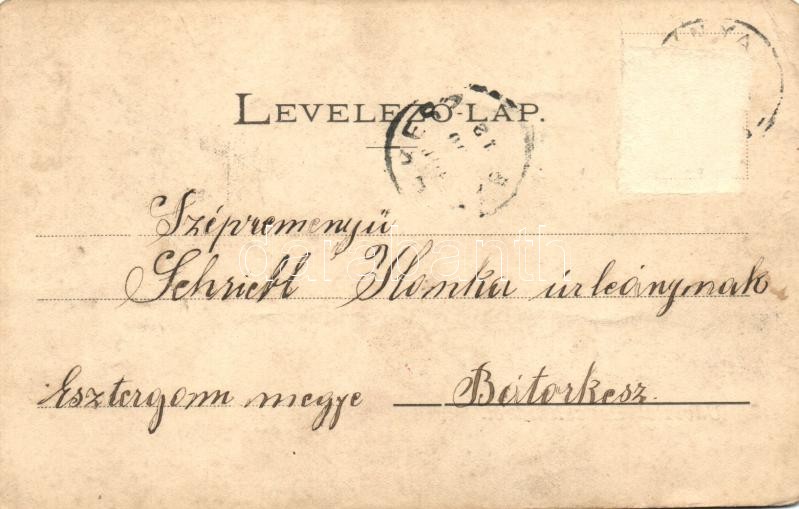 LEVELEZŐ-LAP.
Szépreményű
Schriebl Ilonka úrleánynak
Esztergom megye Bátorkesz.
darabanth